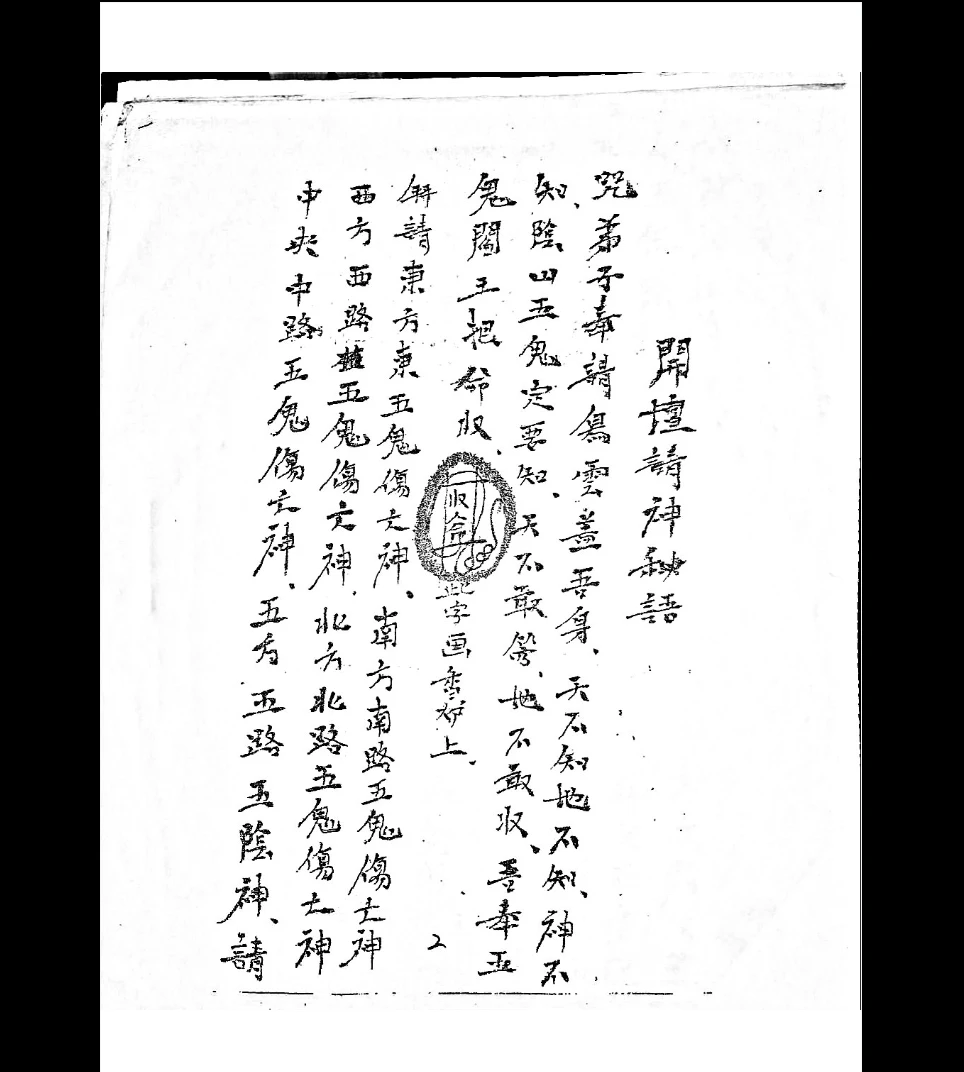 開壇請神秘語
咒弟子奉請烏雲蓋吾身、天不知地不知、神不
知、陰山五鬼定要知、天不敢管、地不敢收、吾奉五
鬼閻王把命收、
收命
此字画香炉上、
併請東方東五鬼傷亡神、南方南路五鬼傷亡神
西方西路五鬼傷亡神、北方北路五鬼傷亡神
中央中路五鬼傷亡神、五方五路五陰神、請
2